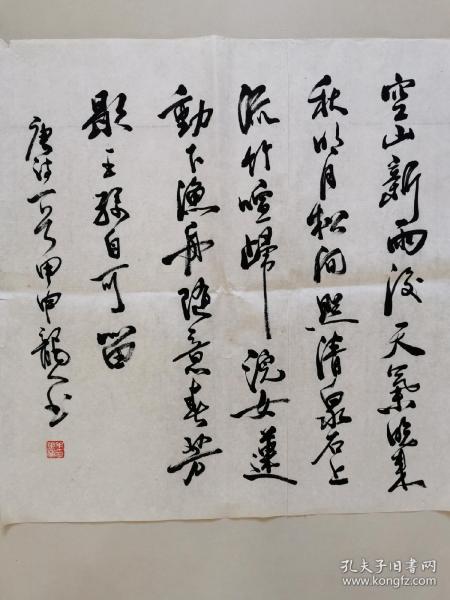 空山新雨後天氣晚来
秋明月松间照清泉石上
流竹喧歸浣女蓮
動下漁舟随意春芳
歇王孫自可留
唐诗一首甲申书
孔夫子旧书网
www.kongfz.com